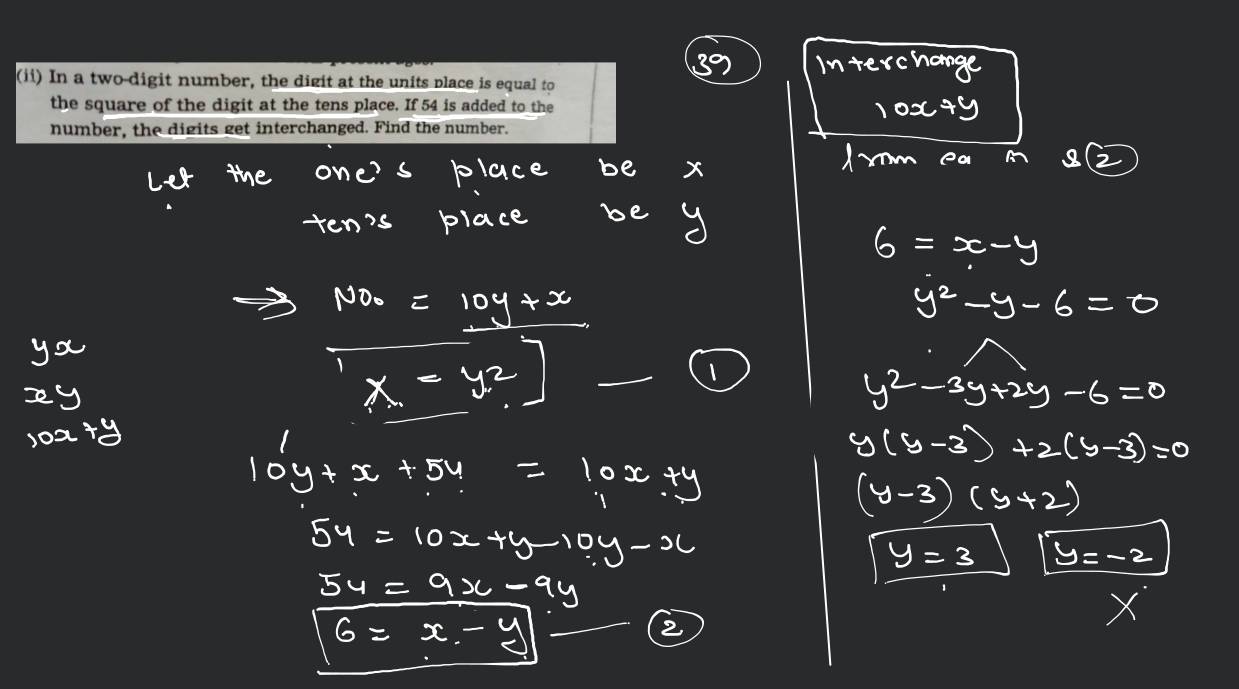 (ii) In a two-digit number, the digit at the units place is equal to
the square of the digit at the tens place. If 54 is added to the
number, the digits get interchanged. Find the number.
Let the one's place be x
ten's place be y
⇒ No. = 10y + x
yx
xy
10x + y
x = y² — ①
10y + x + 54 = 10x + y
54 = 10x + y - 10y - x
54 = 9x - 9y
6 = x - y — ②
39
Interchange
10x + y
from ② 
6 = x - y
y² - y - 6 = 0
y² - 3y + 2y - 6 = 0
y(y-3) + 2(y-3) = 0
(y-3) (y+2)
y = 3 y = -2
X